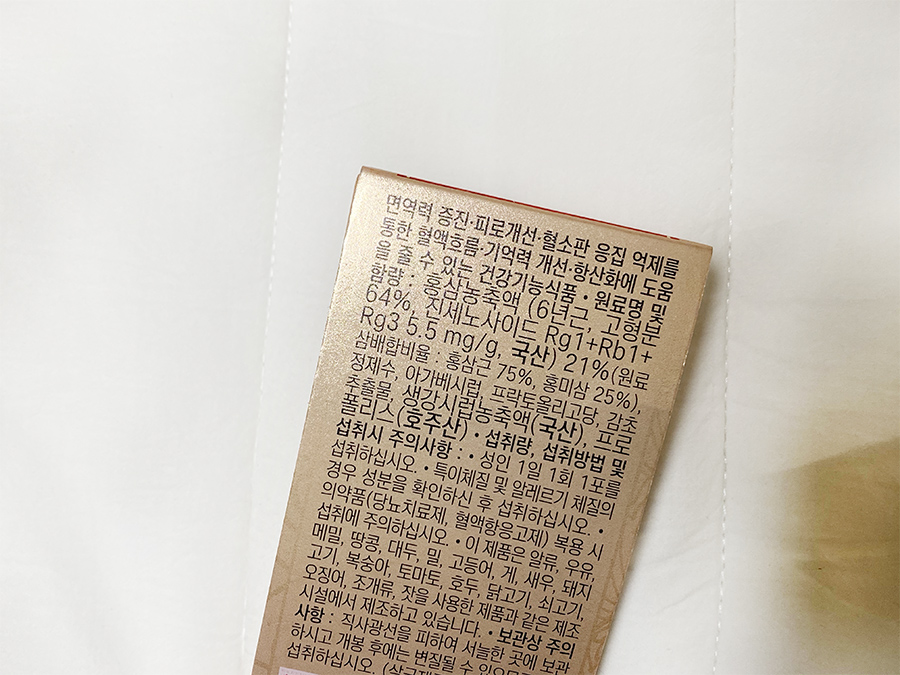 면역력 증진·피로개선·혈소판 응집 억제를
통한 혈액흐름·기억력 개선·항산화에 도움
을 줄 수 있는 건강기능식품 • 원료명 및
함량 : 홍삼농축액 (6년근, 고형분
64%, 진세노사이드 Rg1+Rb1+
Rg3 5.5 mg/g, 국산) 21%(원료
삼배합비율 : 홍삼근 75%, 홍미삼 25%),
정제수, 아가베시럽, 프락토올리고당, 감초
추출물, 생강시럽농축액(국산), 프로
폴리스(호주산) • 섭취량, 섭취방법 및
섭취시 주의사항 : • 성인 1일 1회 1포를
섭취하십시오. • 특이체질 및 알레르기 체질의
경우 성분을 확인하신 후 섭취하십시오. •
의약품(당뇨치료제, 혈액항응고제) 복용 시
섭취에 주의하십시오. • 이 제품은 알류, 우유,
메밀, 땅콩, 대두, 밀, 고등어, 게, 새우, 돼지
고기, 복숭아, 토마토, 호두, 닭고기, 쇠고기,
오징어, 조개류, 잣을 사용한 제품과 같은 제조
시설에서 제조하고 있습니다. • 보관상 주의
사항 : 직사광선을 피하여 서늘한 곳에 보관
하시고 개봉 후에는 변질될 수 있으므로
섭취하십시오.